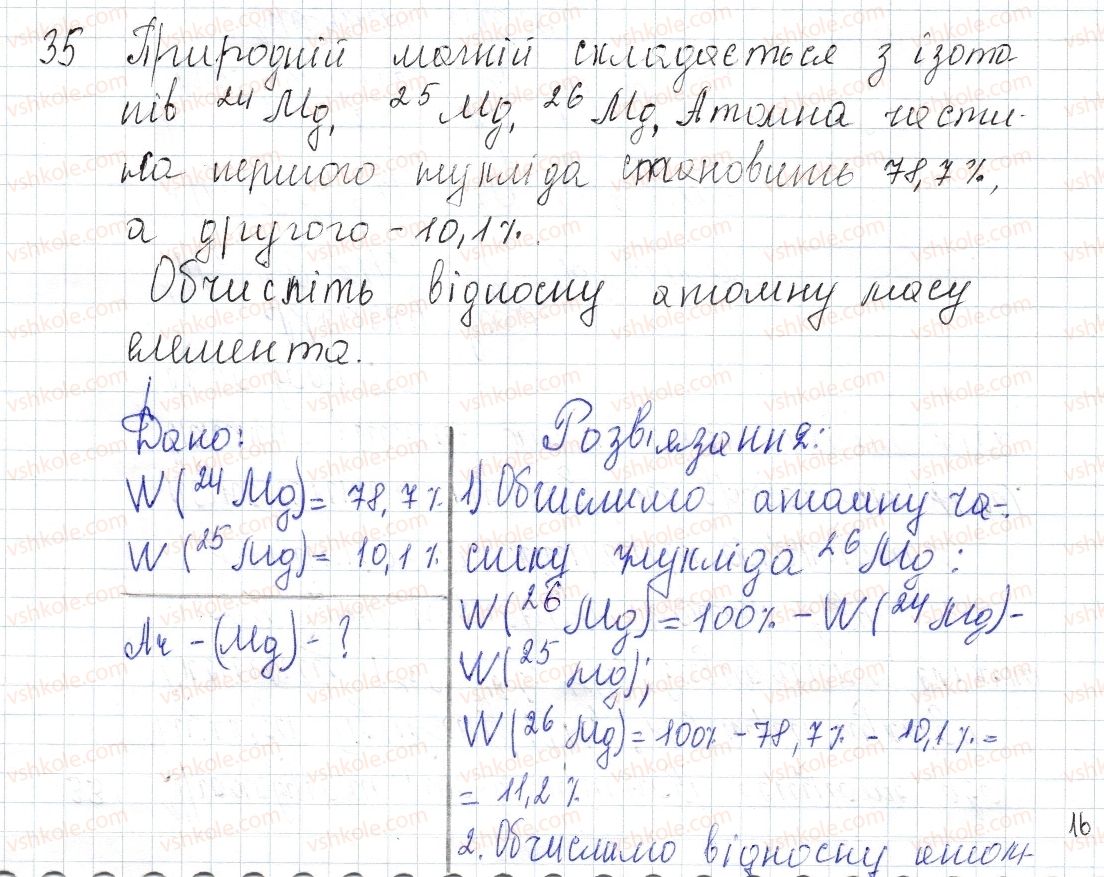 35 Природній магній складається з ізото-
пів ²⁴Mg, ²⁵Mg, ²⁶Mg, Атомна части-
на першого нукліда становить 78,7%,
а другого - 10,1%.
Обчисліть відносну атомну масу
елемента.
Дано:
W(²⁴Mg) = 78,7%
W(²⁵Mg) = 10,1%
Ar - (Mg) - ?
Розвіязання:
1) Обчислимо атомну ча-
сику нукліда ²⁶Mg:
W(²⁶Mg) = 100% - W(²⁴Mg) -
W(²⁵Mg);
W(²⁶Mg) = 100% - 78,7% - 10,1% =
= 11,2%
2. Обчислимо відносну атом-
16